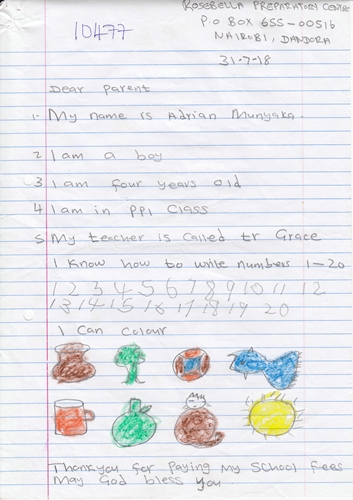 ROSEBELLA PREPARATORY CENTRE
P.O BOX 655-00516
NAIROBI, DANDORA
10477
31-7-18
Dear parent
1. My name is Adrian Munyaka.
2 I am a boy
3 I am four years old
4 I am in PP1 Class
5 My teacher is called tr Grace
I know how to write numbers 1-20
1 2 3 4 5 6 7 8 9 10 11 12
13 14 15 16 17 18 19 20
I can colour
Thankyou for paying my school fees
May God bless you.